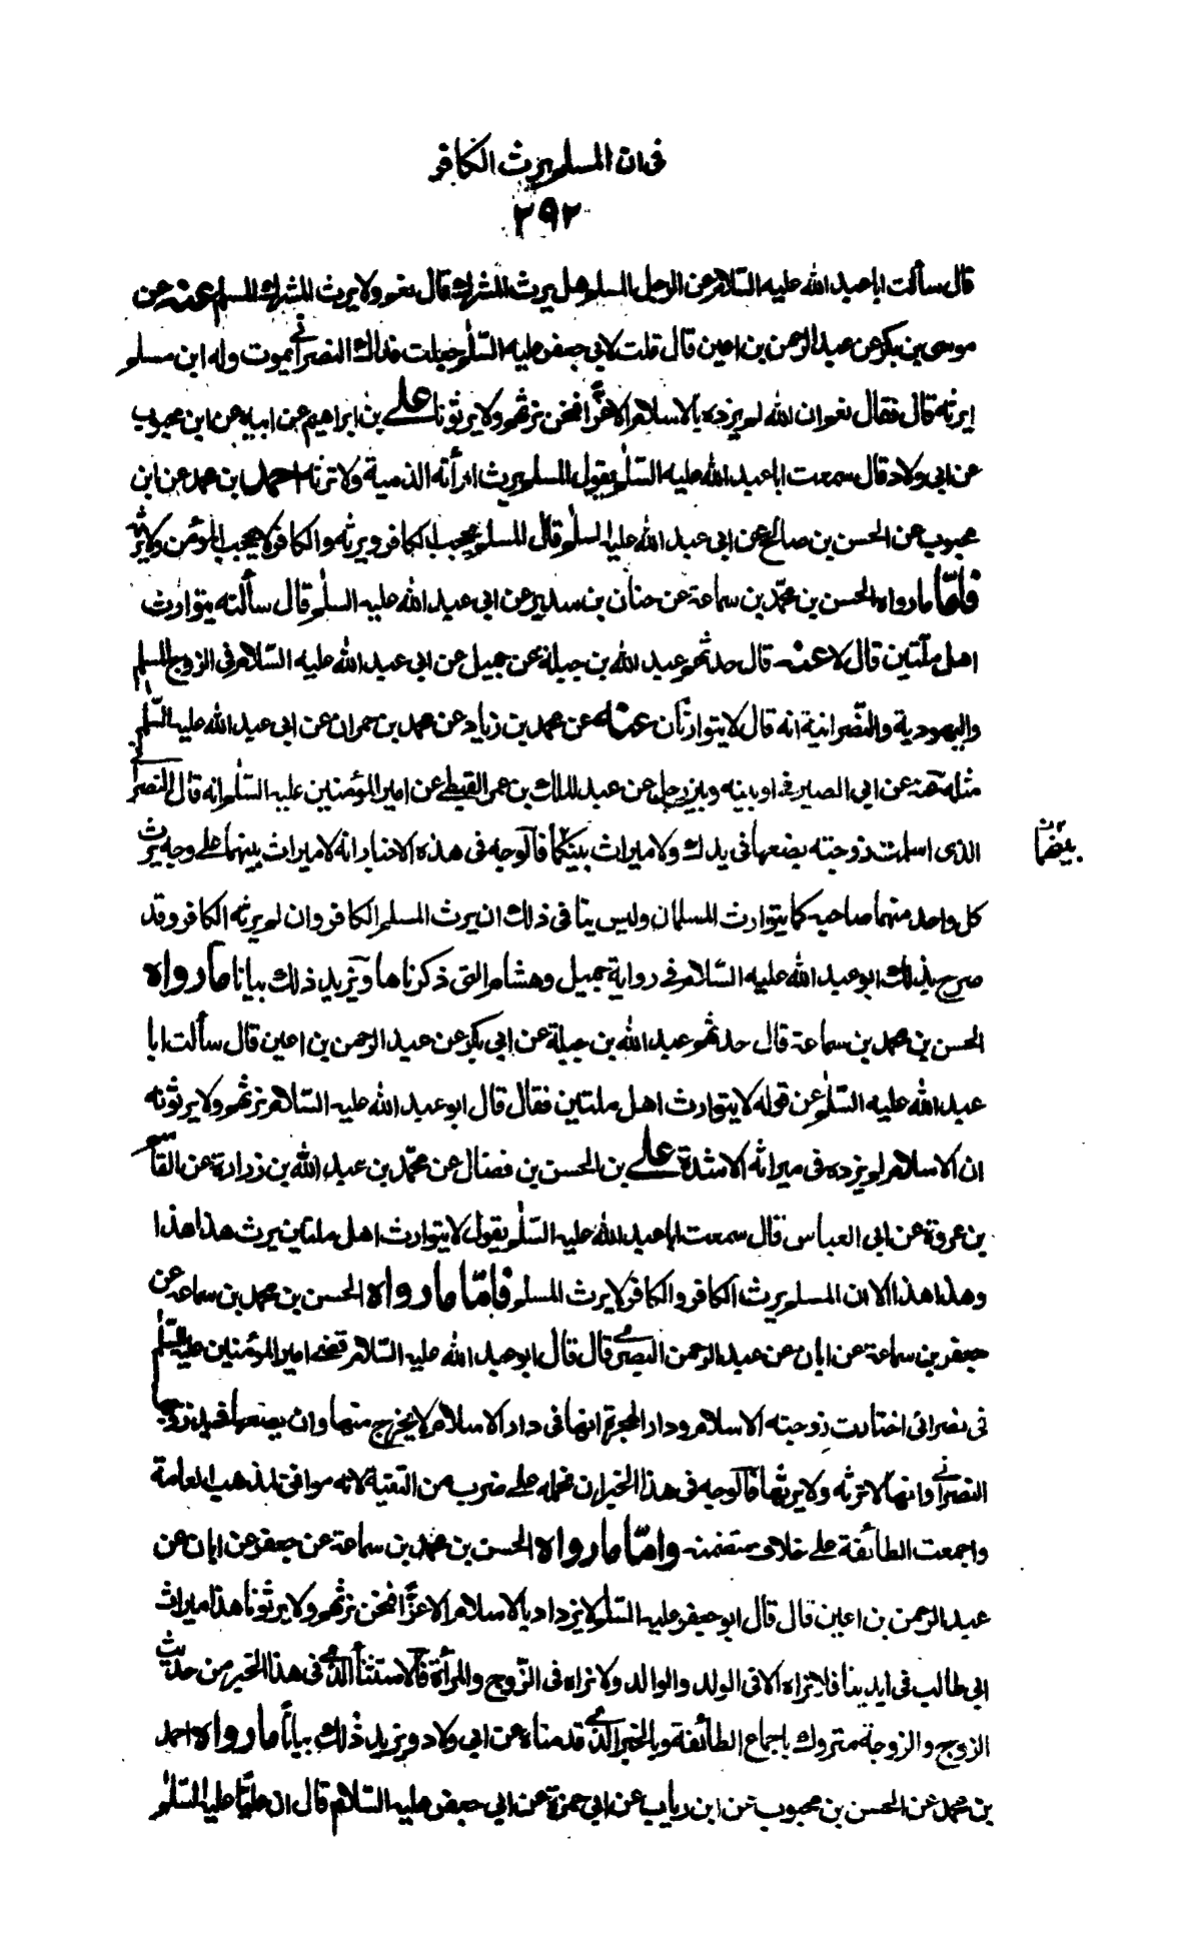 في ان المسلم يرث الكافر
٢٩٢
قال سألت ابا عبد الله عليه السلام عن الرجل المسلم هل يرث المشرك قال نعم ولا يرث المشرك المسلم عنه عن
موسى بن بكر عن عبد الرحمن بن اعين قال قلت لابي جعفر عليه السلم جعلت فداك النصراني يموت وله ابن مسلم
ايرثه قال فقال نعم ان الله لم يزده بالاسلام الا عزّا فنحن نرثهم ولا يرثونا علي بن ابراهيم عن ابيه عن ابن محبوب
عن ابي ولاد قال سمعت ابا عبد الله عليه السلم يقول المسلم يرث امرأته الذمية ولا ترثه احمد بن محمد عن ابن
محبوب عن الحسن بن صالح عن ابي عبد الله عليه السلم قال المسلم يحجب الكافر ويرثه والكافر لا يحجب المؤمن ولا يرثه
فامّا ما رواه الحسن بن محمّد بن سماعة عن حنان بن سدير عن ابي عبد الله عليه السلم قال سألته يتوارث
اهل ملّتين قال لا عنه قال حدثهم عبد الله بن جبلة عن جميل عن ابي عبد الله عليه السلام في الزوج المسلم
واليهودية والنّصرانية انه قال لا يتوارثان عنه عن محمد بن زياد عن محمد بن حمران عن ابي عبد الله عليه السّلم
مثله عنه عن ابي الصيرفي او بينه وبين رجل عن عبد الملك بن عمر القبطي عن امير المؤمنين عليه السلم انه قال النصراني
الذي اسلمت زوجته بضعها في يدك ولا ميراث بينكما فالوجه في هذه الاخبار انه لا ميراث بينهما على وجه يرث
بينهما
كل واحد منهما صاحبه كما يتوارث المسلمان وليس ينافي ذلك ان يرث المسلم الكافر وان لم يرثه الكافر وقد
صرح بذلك ابو عبد الله عليه السّلام في رواية جميل وهشام التي ذكرناها ويزيد ذلك بيانا ما رواه
الحسن بن محمد بن سماعة قال حدثهم عبد الله بن جبلة عن ابي بكر عن عبد الرحمن بن اعين قال سألت ابا
عبد الله عليه السّلم عن قوله لا يتوارث اهل ملتين فقال قال ابو عبد الله عليه السّلام نرثهم ولا يرثونه
ان الاسلام لم يزده في ميراثه الا شدة علي بن الحسن بن فضال عن محمّد بن عبد الله بن زرارة عن القاسم
بن عروة عن ابي العباس قال سمعت ابا عبد الله عليه السّلم يقول لا يتوارث اهل ملتين يرث هذا هذا
وهذا هذا الا ان المسلم يرث الكافر والكافر لا يرث المسلم فامّا ما رواه الحسن بن محمد بن سماعة عن
جعفر بن سماعة عن ابان عن عبد الرحمن البصري قال قال ابو عبد الله عليه السّلام قضى امير المؤمنين عليه السّلم
في نصراني اختارت زوجته الاسلام ودار الهجرة انها في دار الاسلام لا يخرج منها وان بضعها في يد زوجها
النصراني وانها لا ترثه ولا يرثها فالوجه في هذا الخبر ان نحمله على ضرب من التقية لانه موافق لمذهب العامة
واجمعت الطائفة على خلاف متضمنه وامّا ما رواه الحسن بن محمد بن سماعة عن جعفر عن ابان عن
عبد الرحمن بن اعين قال قال ابو جعفر عليه السّلم لا يزداد بالاسلام الا عزّا فنحن نرثهم ولا يرثونا هذا ميراث
ابي طالب في ايدينا فلا نراه الا في الولد والوالد ولا نراه في الزّوج والمرأة فالاستثناء الذي في هذا الخبر من حديث
الزوج والزوجة متروك باجماع الطائفة وبالخبر الذي قدمناه عن ابي ولاد ويزيد ذلك بياناً ما رواه احمد
بن محمد عن الحسن بن محبوب عن ابن رياب عن ابي حمزة عن ابي جعفر عليه السّلام قال ان عليّا عليه السّلم